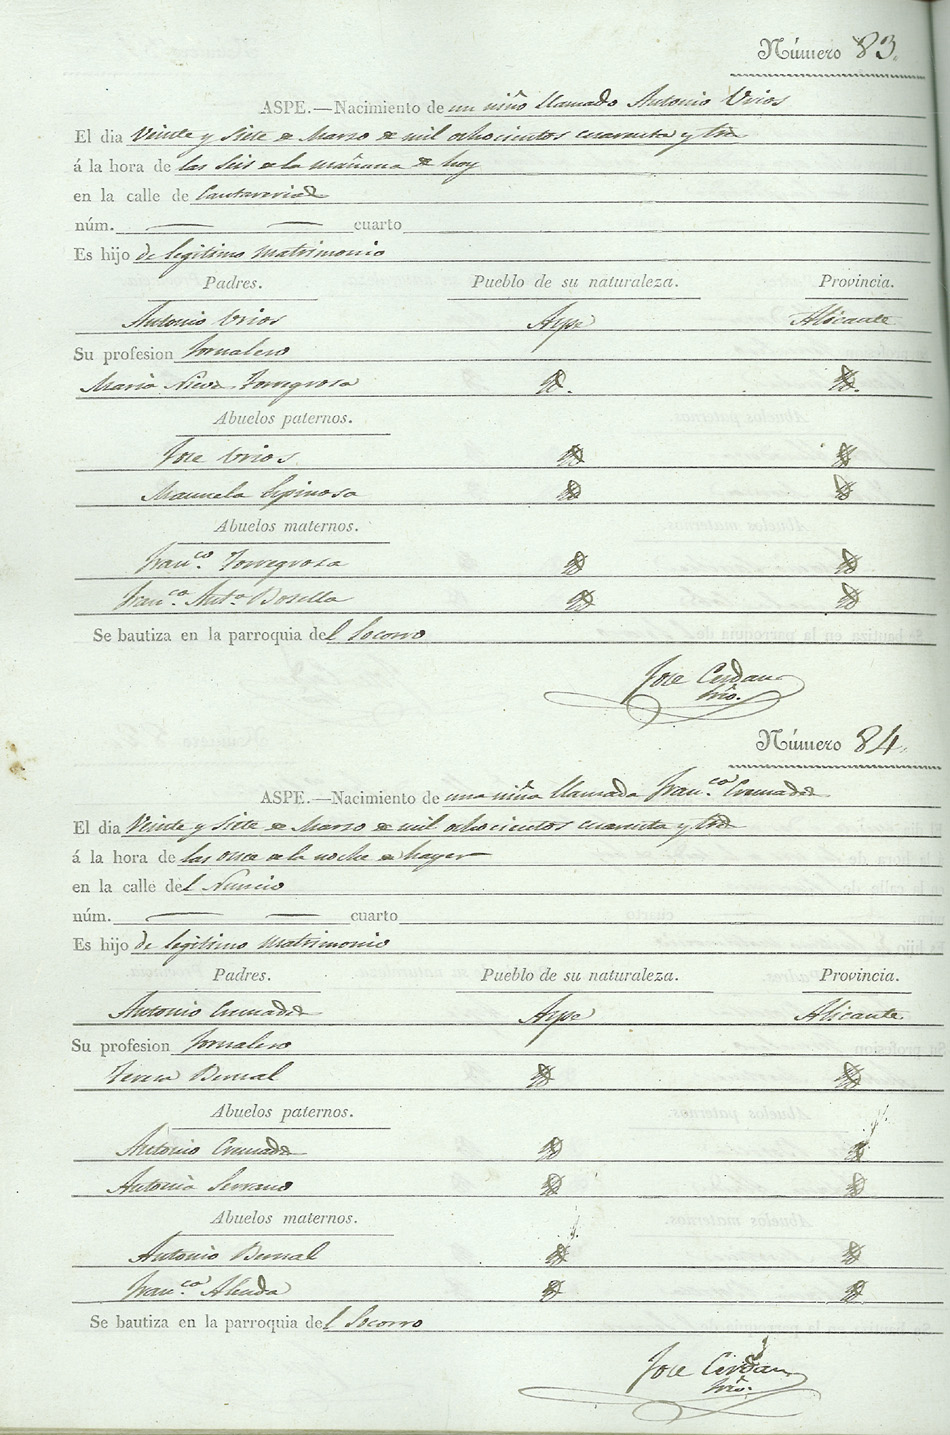 Número 83.
ASPE.—Nacimiento de un niño llamado Antonio Urios
El dia Veinte y Siete de Marzo de mil ochocientos cuarenta y tres
á la hora de las Seis de la mañana de hoy
en la calle de
núm. — — cuarto
Es hijo de legitimo Matrimonio
Padres. Pueblo de su naturaleza. Provincia.
Antonio Urios Aspe Alicante
Su profesion Jornalero
Maria Nieves Torregrosa
Abuelos paternos.
Jose Urios
Manuela Espinosa
Abuelos maternos.
Fran.co Torregrosa
Fran.ca Ant.a Botella
Se bautiza en la parroquia del Socorro
Jose Cerdan
Número 84.
ASPE.—Nacimiento de una niña llamada Fran.ca Cremades
El dia Veinte y Siete de Marzo de mil ochocientos cuarenta y tres
á la hora de las once de la noche de hayer
en la calle del Nuncio
núm. — — cuarto
Es hijo de legitimo Matrimonio
Padres. Pueblo de su naturaleza. Provincia.
Antonio Cremades Aspe Alicante
Su profesion Jornalero
Teresa Bernal
Abuelos paternos.
Antonio Cremades
Antonia Serrano
Abuelos maternos.
Antonio Bernal
Fran.ca Alenda
Se bautiza en la parroquia del Socorro
Jose Cerdan